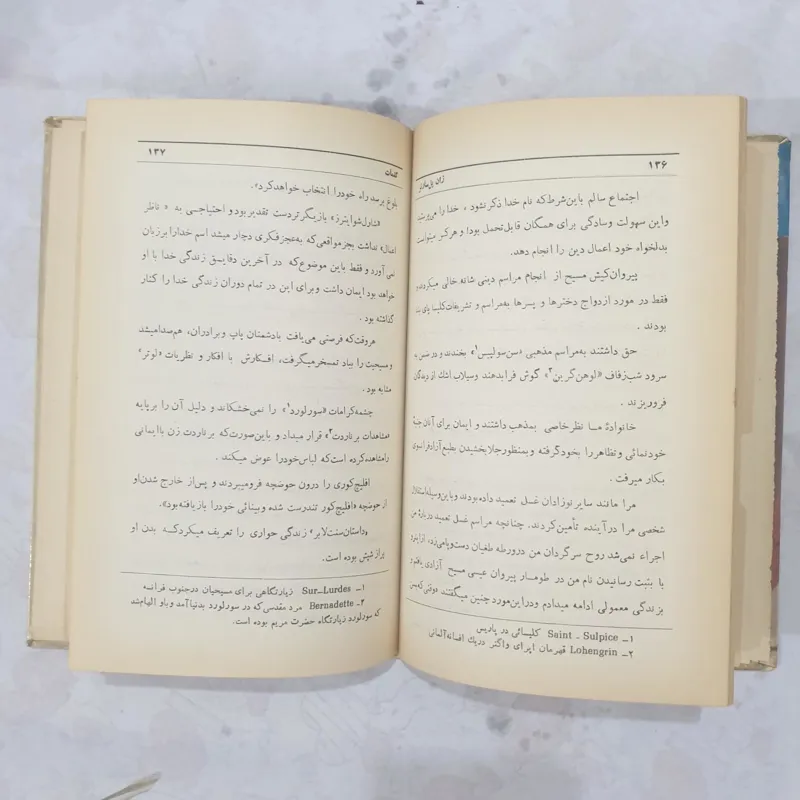 ۱۳۶
ژان پل سارتر
اجتماع سالم باین‌شرط‌که نام خدا ذکر نشود، خدا را
واین سهولت وسادگی برای همگان قابل‌تحمل بود! و هرکس میتوانست
بدلخواه خود اعمال دین را انجام دهد.
پیروان‌کیش مسیح از انجام مراسم دینی شانه خالی میکردند و
فقط در مورد ازدواج دخترها و پسرها به‌مراسم و تشریفات‌کلیسا پای بند
بودند.
حق داشتند به‌مراسم مذهبی «سن‌سولپیس۱» بخندند و در ضمن
سرود شب‌زفاف «لوهن‌گرین۲» گوش فرابدهند وسیلاب اشك از دیدگان
فروریزند.
خانوادهٔ مــا نظرخاصی بمذهب داشتند و ایمان برای آنان جنبهٔ
خودنمائی و تظاهر را بخودگرفته و بمنظورجلابخشیدن بطبع آزادفرانسوی
بکار میرفت.
مرا مانند سایر نوزادان غسل تعمید داده‌بودند و باین‌وسیله استقلال
شخصی مرا درآینده تأمین‌کردند. چنانچه مراسم غسل تعمید دربارهٔ من
اجراء نمی‌شد روح سرگردان من درورطه طغیان دست‌وپامی‌زد، ازاینرو
با بثبت رسانیدن نام من در طومـار پیروان عیسی مسیح آزادی یافتم و
بزندگی معمولی ادامه میدادم ودراین‌مورد چنین میگفتند «وقتی‌که‌بسن
۱– Saint - Sulpice کلیسائی در پاریس
۲– Lohengrin قهرمان اپرای واگنر دریك افسانه‌آلمانی
کلمات
۱۳۷
بلوغ برسد راه خودرا انتخاب خواهدکرد».
«شارل‌شوایتزر» بازیگر تردست تقدیر بود و احتیاجـی به « ناظر
اعمال» نداشت بجزمواقعی‌که به‌عجزفکری دچار میشد اسم خدارابرزبان
نمی‌آورد و فقط باین موضوع‌که در آخرین دقایـق زندگی خدا با او
خواهد بود ایمان داشت وبرای این در تمام دوران زندگی خدا را کنار
گذاشته بود.
هروقت‌که فرصتی می‌یافت بادشمنان پاپ وبرادران، هم‌صدامیشد
ومسیحیت را بباد تمسخرمیگرفت، افکارش با افکار و نظریات «لوتر»
مشابه بود.
چشمه‌کرامات «سورلورد۱» را نمی‌خشکاند و دلیل آن را برپایه
«مشاهدات برنادت۲» قرار میداد و باین‌صورت‌که برنادرت زن باایمانی
را مشاهده‌کرده است‌که لباس‌خودرا عوض میکند.
افلیج‌کوری را درون حوضچه فرومیبردند و پس‌از خارج شدن‌او
از حوضچه «افلیج‌کور تندرست شده وبینائی خودرا بازیافته‌بود».
«داستان‌سنت‌لابر» زندگی حواری را تعریف میکردکـه بدن او
پراز شپش بوده است.
۱– Sur_Lurdes زیارتگاهی برای مسیحیان درجنوب فرانـه
۲– Bernadette مرد مقدسی‌که در سورلورد بدنیاآمد وباو الهام‌شد
که سورلورد زیارتگاه حضرت مریم بوده است.